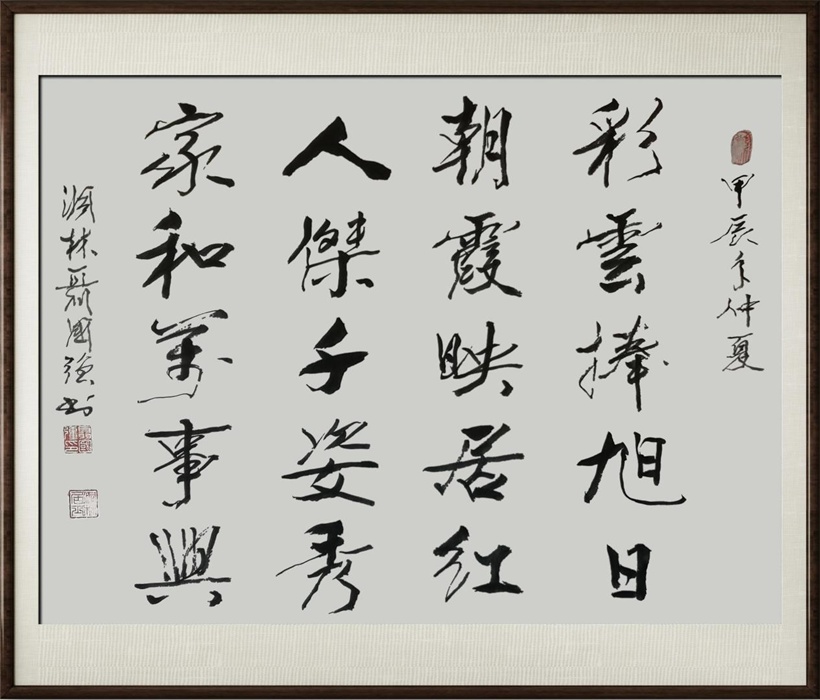 甲辰年仲夏
彩雲捧旭日
朝霞映居紅
人傑千姿秀
家和萬事興
濱林聶國強书